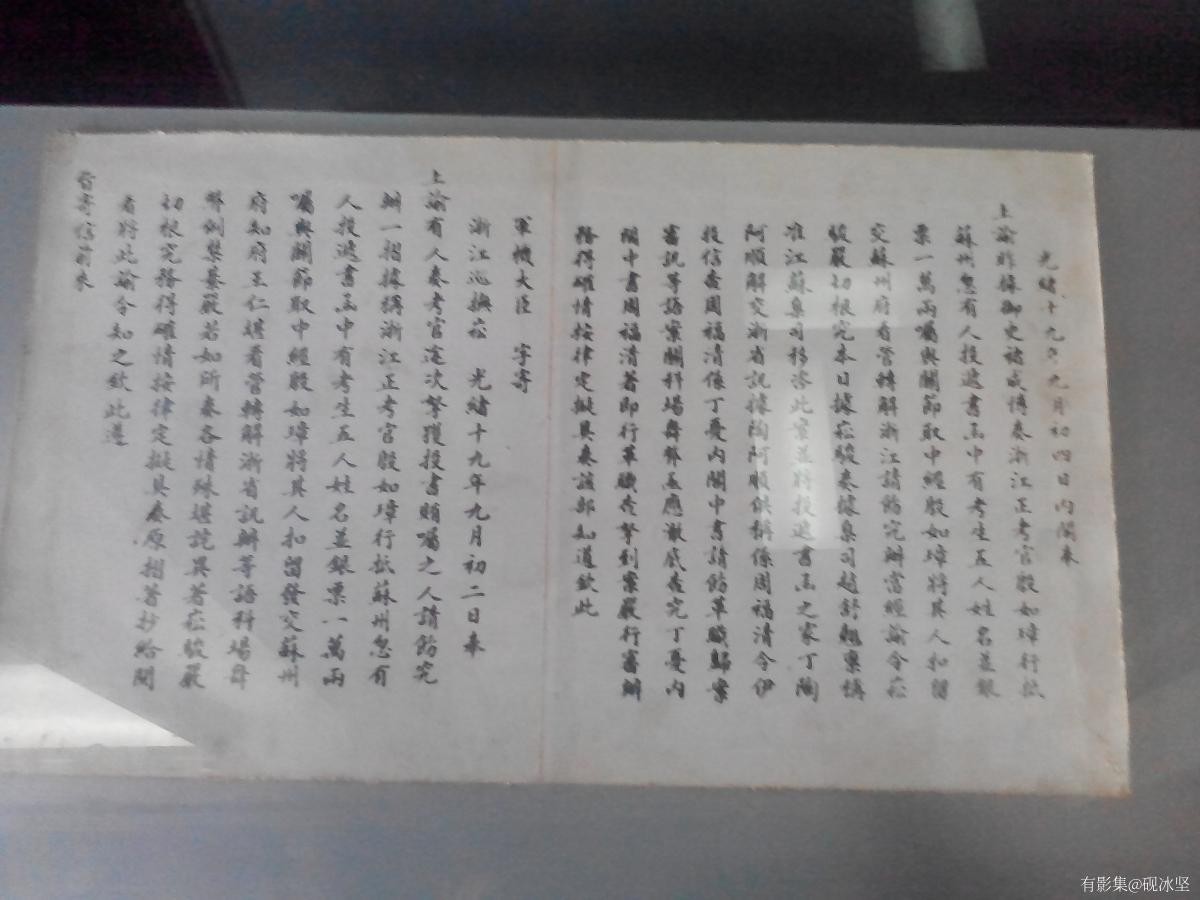 光緒十九年九月初四日內閣奉
上諭昨據御史褚成博奏浙江正考官殷如璋行抵
蘇州忽有人投遞書函中有考生五人姓名並銀
票一萬兩囑與關節取中經殷如璋將其人扣留
交蘇州府看管轉解浙江請飭究辦當經諭令崧
駿嚴切根究本日據崧駿奏據臬司趙舒翹稟稱
准江蘇臬司移咨此案並將投遞書函之家丁陶
阿順解交浙省訊據陶阿順供稱係周福清令伊
投信查周福清係丁憂內閣中書請飭革職歸案
審訊等語案關科場舞弊亟應澈底查究丁憂內
閣中書周福清著即行革職查拏到案嚴行審辦
務得確情按律定擬具奏該部知道欽此
軍機大臣 字寄
浙江巡撫崧 光緒十九年九月初二日奉
上諭有人奏考官途次拏獲投書賄囑之人請飭究
辦一摺據稱浙江正考官殷如璋行抵蘇州忽有
人投遞書函中有考生五人姓名並銀票一萬兩
囑與關節取中經殷如璋將其人扣留發交蘇州
府知府王仁堪看管轉解浙省訊辦等語科場舞
弊例禁綦嚴若如所奏各情殊堪詫異著崧駿嚴
切根究務得確情按律定擬具奏原摺著抄給閱
看將此諭令知之欽此遵
旨寄信前來
有影集@砚冰坚